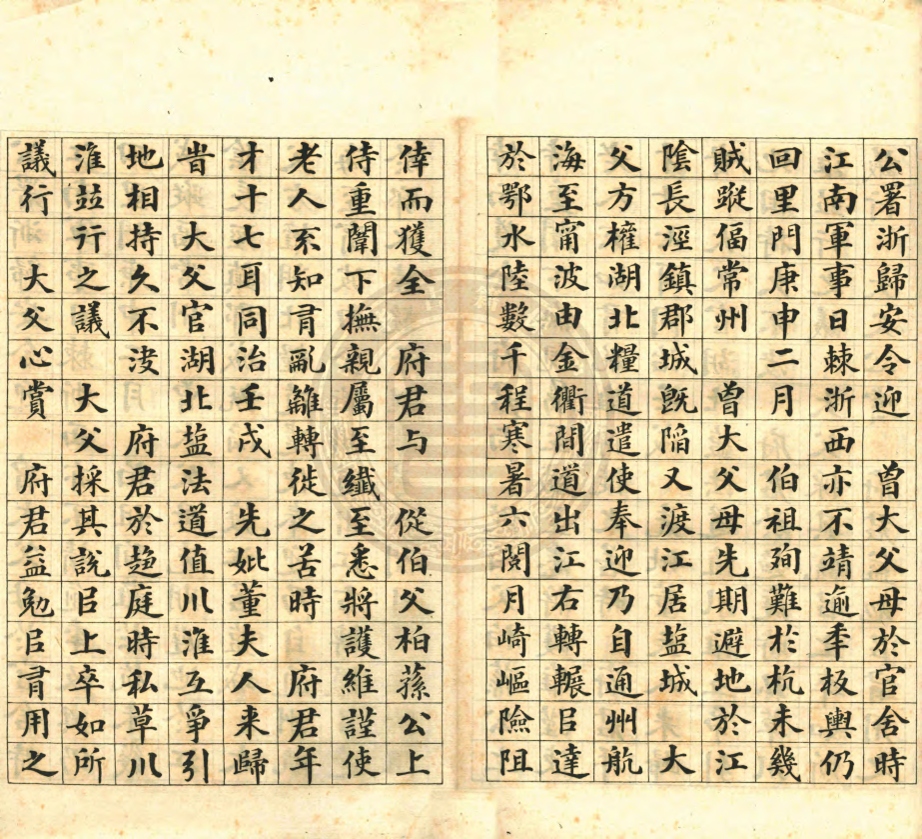 公署浙歸安令迎 曾大父母於官舍時
江南軍事日棘浙西亦不靖逾季板輿仍
回里門庚申二月 伯祖殉難於杭未幾
賊蹤偪常州 曾大父母先期避地於江
陰長涇鎮郡城旣陷又渡江居塩城 大
父方權湖北糧道遣使奉迎乃自通州航
海至甯波由金衢間道出江右轉輾㠯達
於鄂水陸數千程寒暑六閱月崎嶇險阻
倖而獲全 府君与 從伯父柏蓀公上
侍重闈下撫親屬至纖至悉將護維謹使
老人不知有亂離轉徙之苦時 府君年
才十七耳同治壬戌 先妣董夫人来歸
旹 大父官湖北塩法道值川淮互爭引
地相持久不決 府君於趨庭時私草川
淮並行之議 大父採其說㠯上卒如所
議行 大父心賞 府君益勉㠯有用之